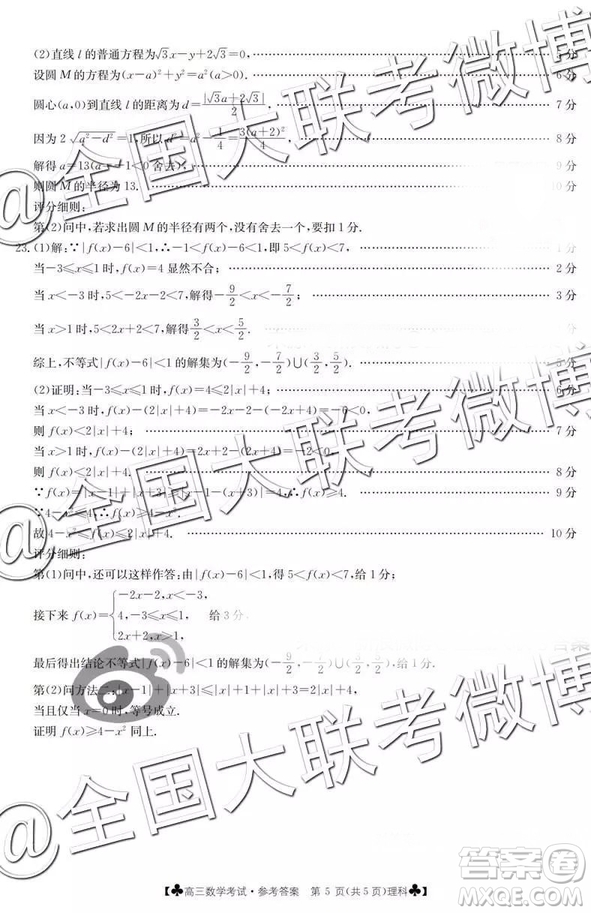 (2)直线 l 的普通方程为√3x-y+2√3=0, 5分
设圆 M 的方程为(x-a)²+y²=a²(a>0). 6分
圆心(a,0)到直线 l 的距离为 d=|√3a+2√3|/2, 7分
因为 2√(a²-d²)=1,所以 d²=a²-1/4=3(a+2)²/4, 8分
解得 a=13(a=-1<0 舍去), 9分
则圆 M 的半径为 13. 10分
评分细则:
第(2)问中,若求出圆 M 的半径有两个,没有舍去一个,要扣 1 分.
23.(1)解:∵|f(x)-6|<1,∴-1<f(x)-6<1,即 5<f(x)<7, 1分
当-3≤x≤1 时,f(x)=4 显然不合; 2分
当 x<-3 时,5<-2x-2<7,解得-9/2<x<-7/2; 3分
当 x>1 时,5<2x+2<7,解得3/2<x<5/2.
综上,不等式|f(x)-6|<1 的解集为(-9/2,-7/2)∪(3/2,5/2). 5分
(2)证明:当-3≤x≤1 时,f(x)=4≤2|x|+4; 6分
当 x<-3 时,f(x)-(2|x|+4)=-2x-2-(-2x+4)=-6<0,
则 f(x)<2|x|+4; 7分
当 x>1 时,f(x)-(2|x|+4)=2x+2-(2x+4)=-2<0,
则 f(x)<2|x|+4. 8分
∵f(x)=|x-1|+|x+3|≥|x-1-x-3|=4,∴f(x)≥4. 9分
∵4-x²≤4,∴f(x)≥4-x².
故 4-x²≤f(x)≤2|x|+4. 10分
评分细则:
第(1)问中,还可以这样作答:由|f(x)-6|<1,得 5<f(x)<7,给 1 分;
接下来 f(x)={-2x-2,x<-3, 4,-3≤x≤1, 2x+2,x>1, 给 3 分
最后得出结论不等式|f(x)-6|<1 的解集为(-9/2,-7/2)∪(3/2,5/2),给 1 分.
第(2)问方法二:|x-1|+|x+3|≤|x|+1+|x|+3=2|x|+4,
当且仅当 x=0 时,等号成立.
证明 f(x)≥4-x² 同上.
♣高三数学考试·参考答案 第 5 页(共 5 页)理科♣
@全国大联考微博
@全国大联考微博
@全国大联考微博
答案圈
MXQE.COM